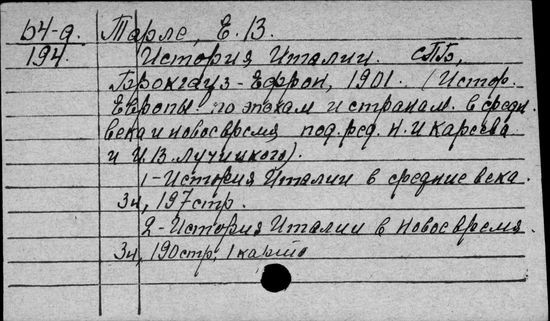 Ь4-д. Тарле, Е. В.
194. История Италии. СПБ,
Брокгауз-Ефрон, 1901. (Истор.
Европы по эпохам и странам в средн.
века и новое время под. ред. Н. И Кареева
и И. В. Лучицкого).
1-История Италии в средние века.
3н, 197 стр.
2-История Италии в новое время.
3н, 190 стр, 1 карта